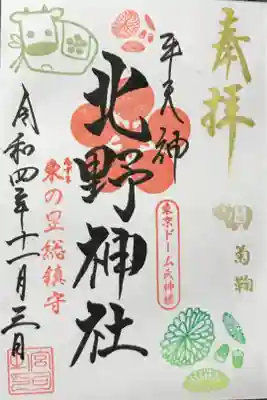 奉拝
牛天神
東京ドーム氏神様
北野神社
総鎮守
令和四年十一月三日